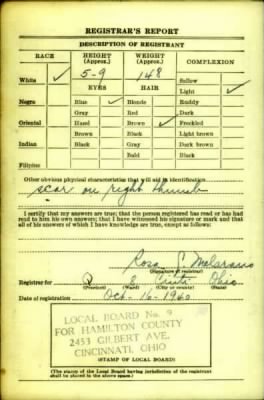 REGISTRAR'S REPORT
DESCRIPTION OF REGISTRANT
RACE HEIGHT (Approx.) WEIGHT (Approx.) COMPLEXION
White ✓ 5-9 148 Sallow
Light ✓
EYES HAIR
Negro Blue ✓ Blonde Ruddy
Gray Red Dark
Oriental Hazel Brown ✓ Freckled
Brown Black Light brown
Indian Black Gray Dark brown
Bald Black
Filipino
Other obvious physical characteristics that will aid in identification
scar on right thumb
I certify that my answers are true; that the person registered has read or has had
read to him his own answers; that I have witnessed his signature or mark and that
all of his answers of which I have knowledge are true, except as follows:
Rosa
(Signature of registrar)
Registrar for Ohio
(Precinct) (Ward) (City or county) (State)
Date of registration Oct. 16-1940
LOCAL BOARD No. 9
FOR HAMILTON COUNTY
2453 GILBERT AVE.
CINCINNATI, OHIO
(STAMP OF LOCAL BOARD)
(The stamp of the Local Board having jurisdiction of the registrant
shall be placed in the above space.)